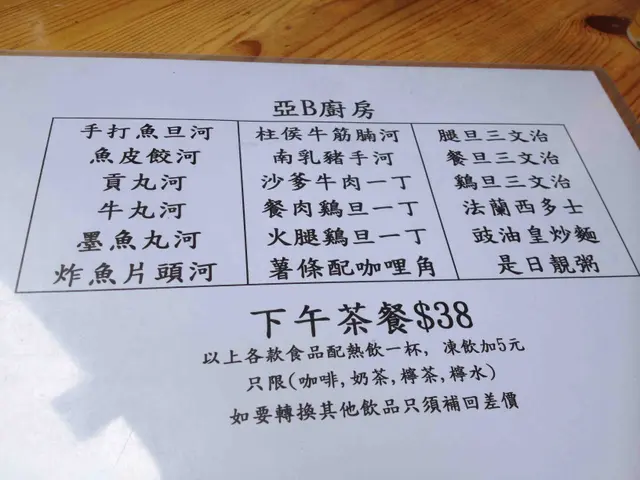 亞B廚房
手打魚旦河 柱侯牛筋腩河 腿旦三文治
魚皮餃河 南乳豬手河 餐旦三文治
貢丸河 沙爹牛肉一丁 鷄旦三文治
牛丸河 餐肉鷄旦一丁 法蘭西多士
墨魚丸河 火腿鷄旦一丁 豉油皇炒麵
炸魚片頭河 薯條配咖哩角 是日靚粥
下午茶餐$38
以上各款食品配熱飲一杯, 凍飲加5元
只限(咖啡, 奶茶, 檸茶, 檸水)
如要轉換其他飲品只須補回差價